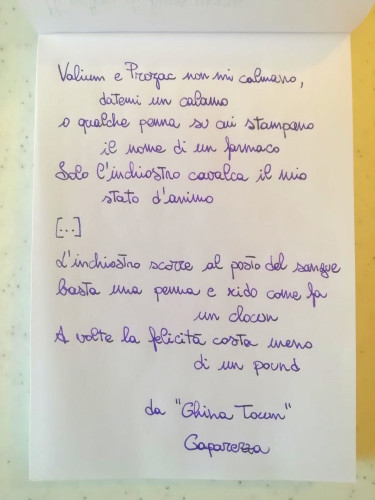 Valium e Prozac non mi calmano,
datemi un calamo
o qualche penna su cui stampano
il nome di un farmaco
Solo l'inchiostro cavalca il mio
stato d'animo
[...]
L'inchiostro scorre al posto del sangue
basta una penna e rido come fa
un clown
A volte la felicità costa meno
di un pound
da "China Town"
Caparezza